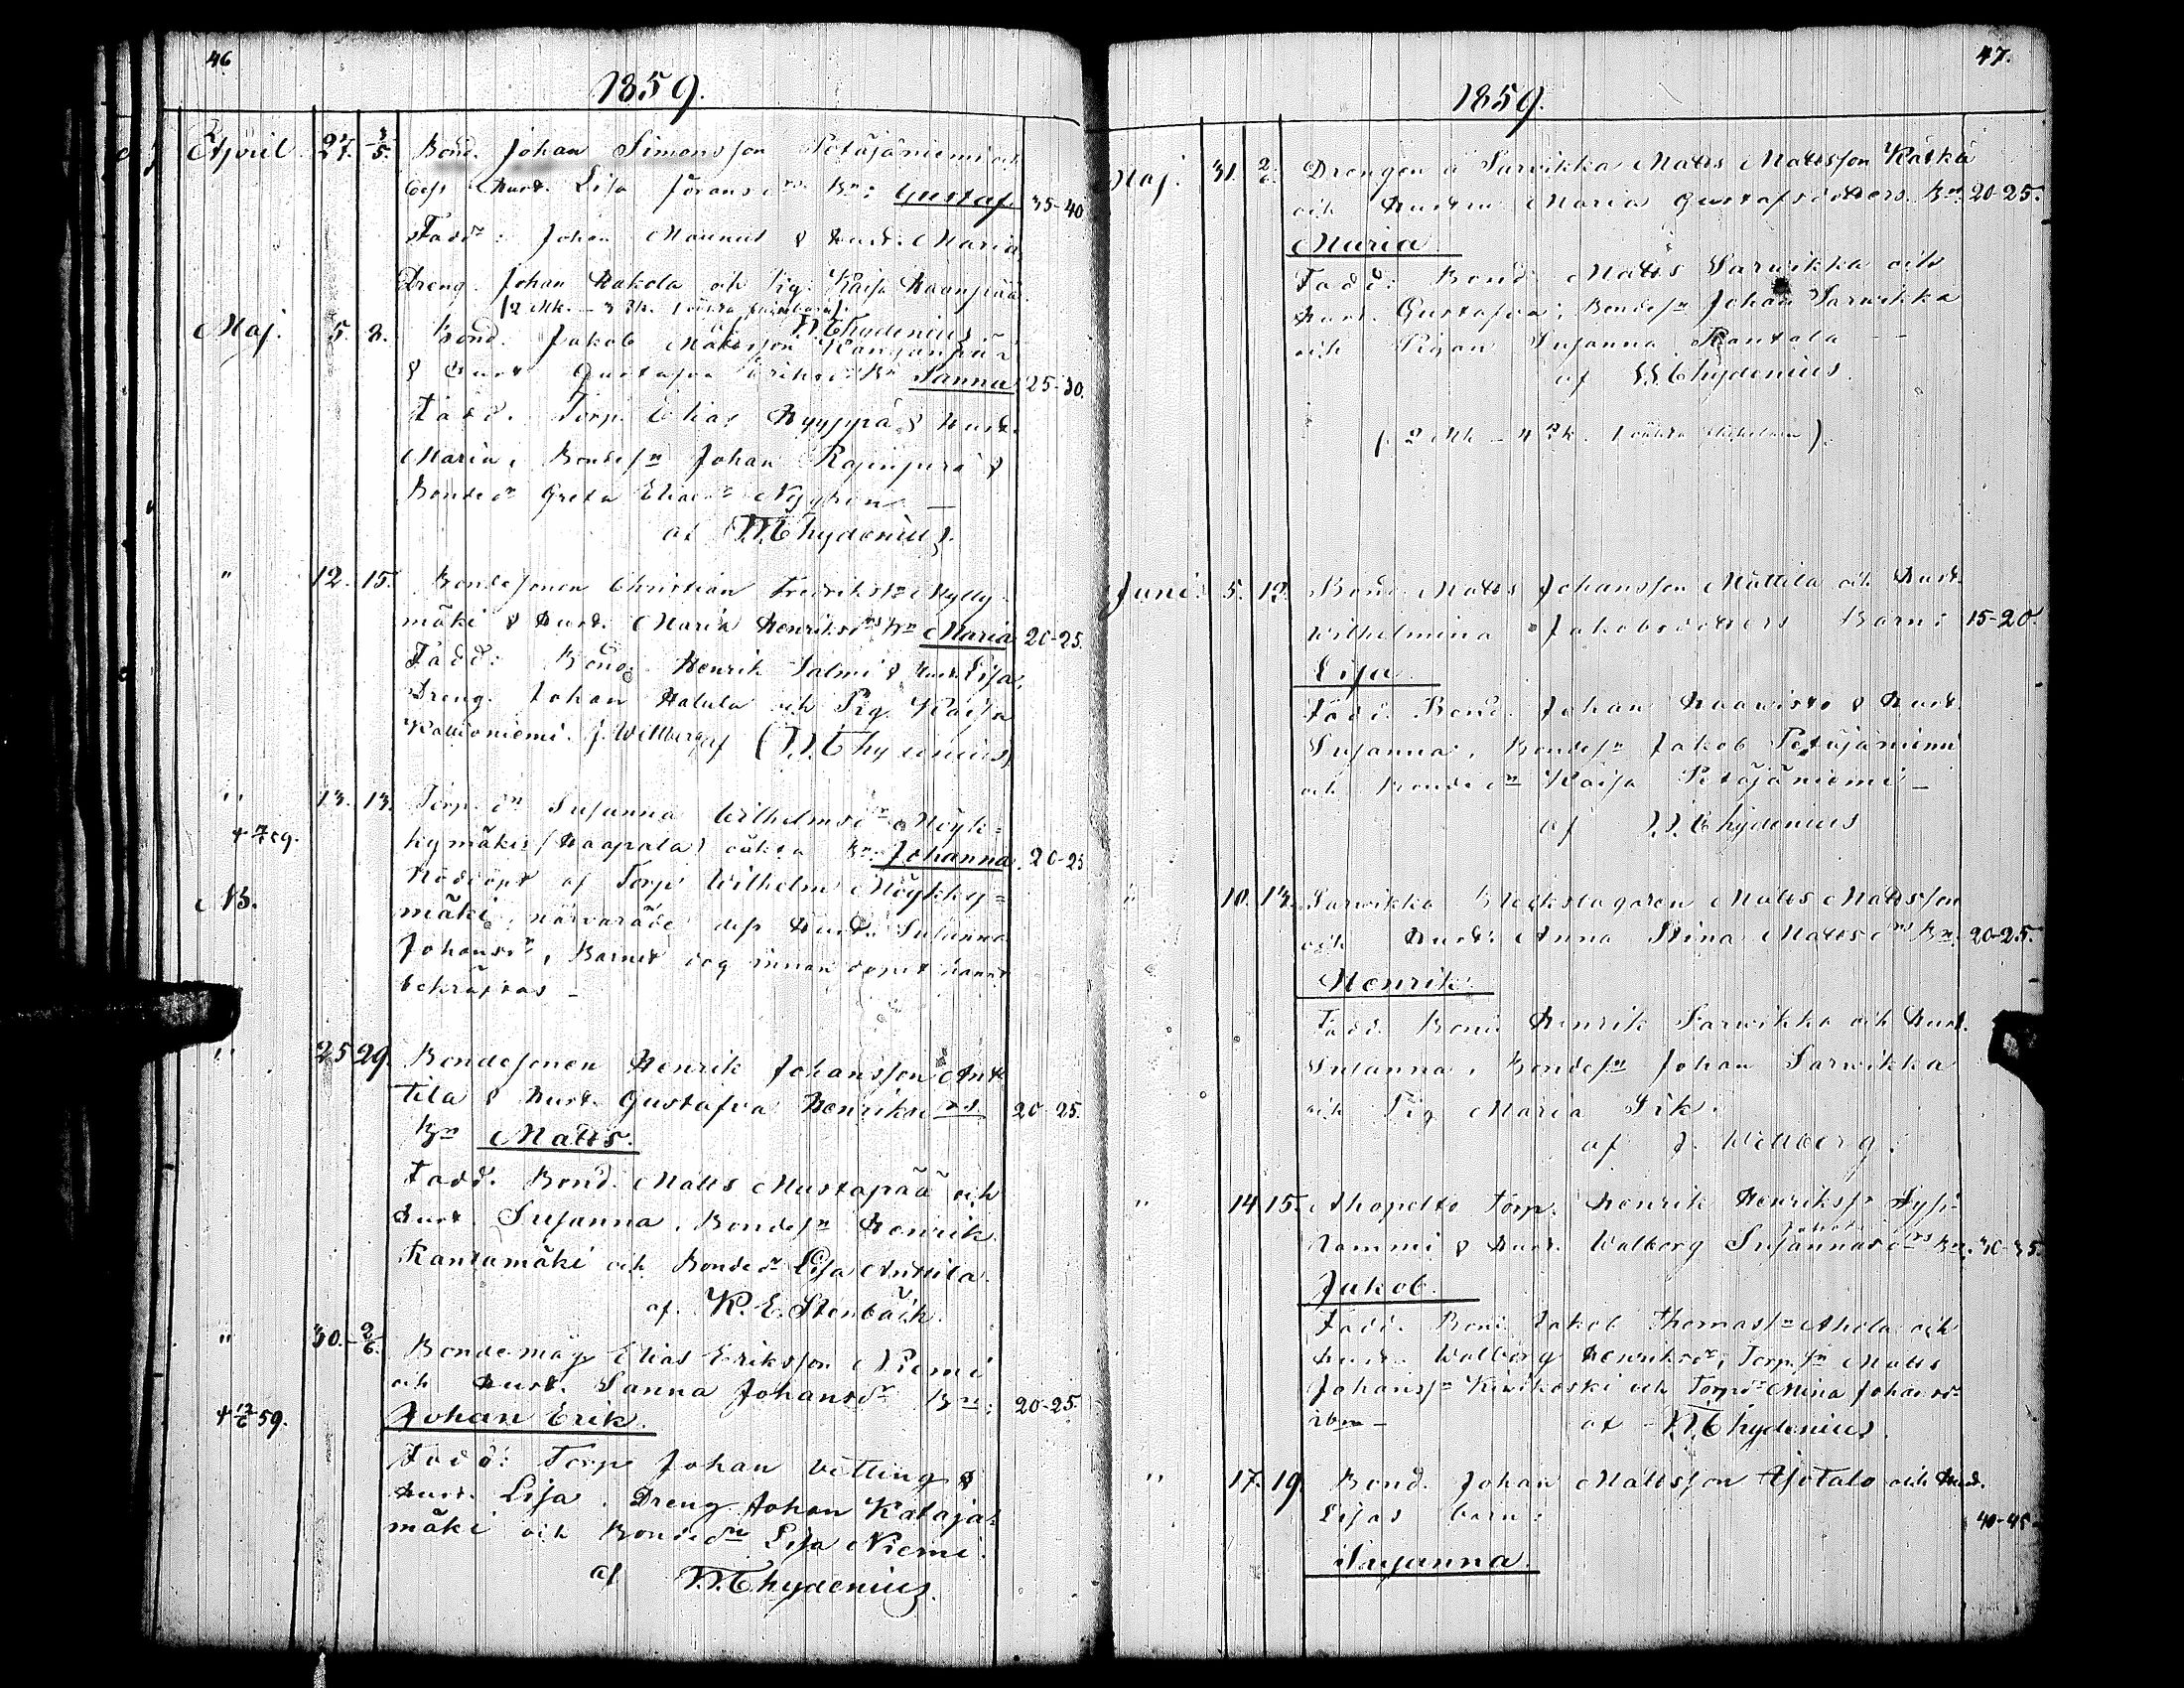 46.
1859.
April 27. 1/5. Bond. Johan Simonsson Petäjäniemi och
dess Hust. Lisa Göransdrs Bn: Gustaf 35-40
Fadd: Johan Maunus & Hust. Maria,
Dreng. Johan Hakola och Pig. Kaisa Haanpää
af W. Chydenius
Maj. 5. 8. Bond. Jakob Mattsson Kanganpää
& Hust Gustafva Eriksd: Bn Sanna 25-30.
Fadd. Torp. Elias Hyyppä & Hust.
Maria, Bondesn Johan &
Bondedr Greta Eliaedr
af W. Chydenius.
" 12. 15. Bondesonen Christian Fredrikssn Mylly-
mäki & Hust. Maria Henriksdrs Bn Maria 20-25.
Fadd: Bond. Henrik Salmi & Hust. Lisa,
Dreng. Johan Hatula och Pig. Kaisa
J. Wellberg af (W. Chydenius)
" 13. 13. Torp. dr Susanna Wilhelmsdr Möyk-
+ 7/7 59.
kymäkis (Haapala) oäkta Bn. Johanna. 20-25
NB.
Nöddöpt af Torp Wilhelm Möykky-
mäki, närvarande dess Hust. Susanna
Johansdr, Barnet dog innan dopet hann
bekräftas -
" 25 29. Bondesonen Henrik Johansson Ant-
tila & Hust. Gustafva Henriksdrs 20-25.
Bn Matts.
Fadd. Bond. Matts Mustapää och
Hust. Susanna, Bondesn Henrik
Rantamäki och Bondedr Lisa Anttila.
af. K. E. Stenbäck.
" 30. 2/6. Bondemåg Elias Eriksson Niemi
och Hust. Sanna Johansdr Bn: 20-25.
+ 12/6 59.
Johan Erik.
Fadd: Torp Johan Vitting &
Hust. Lisa, Dreng Johan Kataja-
mäki och Bondedr Lisa Niemi.
af W. Chydenius.
47.
1859.
Maj. 31. 2/6. Drengen å Sarvikka Matts Mattsson Kätkä
och Hustru Maria Gustafsdotters Bn 20-25.
Maria
Fadd: Bond Matts Sarwikka och
Hust. Gustafva; Bondesn Johan Sarwikka
och Pigan Susanna Rantala - -
af W. Chydenius.
Juni 5. 12. Bond. Matts Johansson Mattila och Hust.
Wilhelmina Jakobsdotters Barn: 15-20.
Lisa
Fadd. Bond. Johan Haawisto & Hust.
Susanna, Bondesn Jakob Petäjäniemi
och Bondedr Kaisa Petäjäniemi -
af W. Chydenius
" 10. 13. Sarwikka Bleckslagaren Matts Mattsson
och Hust: Anna Stina Mattsdrs Bn. 20-25.
Henrik.
Fadd. Bond Henrik Sarwikka och Hust.
Susanna, Bondesn Johan Sarwikka
och Pig Maria Sik.
af J. Wellberg.
" 14. 15. Ahopelto Torp. Henrik Henrikssn Sysi-
Jakobs
lammi & Hust. Walborg Susannasdrs Bn. 30-35.
Jakob.
Fadd. Bond Jakob Thomassn Ahola och
Hust. Walborg Henriksdr, Torp. sn Matts
Johanssn Kiwikoski och Torpdr Mina Johansdr
ibm - af W. Chydenius.
" 17. 19. Bond. Johan Mattsson Ajotalo och Hust.
Lisas barn: 40-45
Susanna.